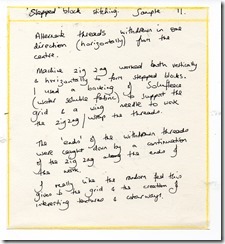 'Stepped' block stitching. Sample 11.
Alternate threads withdrawn in one
direction (horizontally) from the
centre.
Machine zig zag worked both vertically
& horizontally to form stepped blocks.
I used a backing of Solufleece
(water soluble fabric) to support the
grid & a wing needle to work
the zigzag/wrap the threads.
The 'ends' of the withdrawn threads
were caught down by a continuation
of the zig zag along the ends of
the work.
I really like the random feel this
gives to the grid & the creation of
interesting textures & colourways.